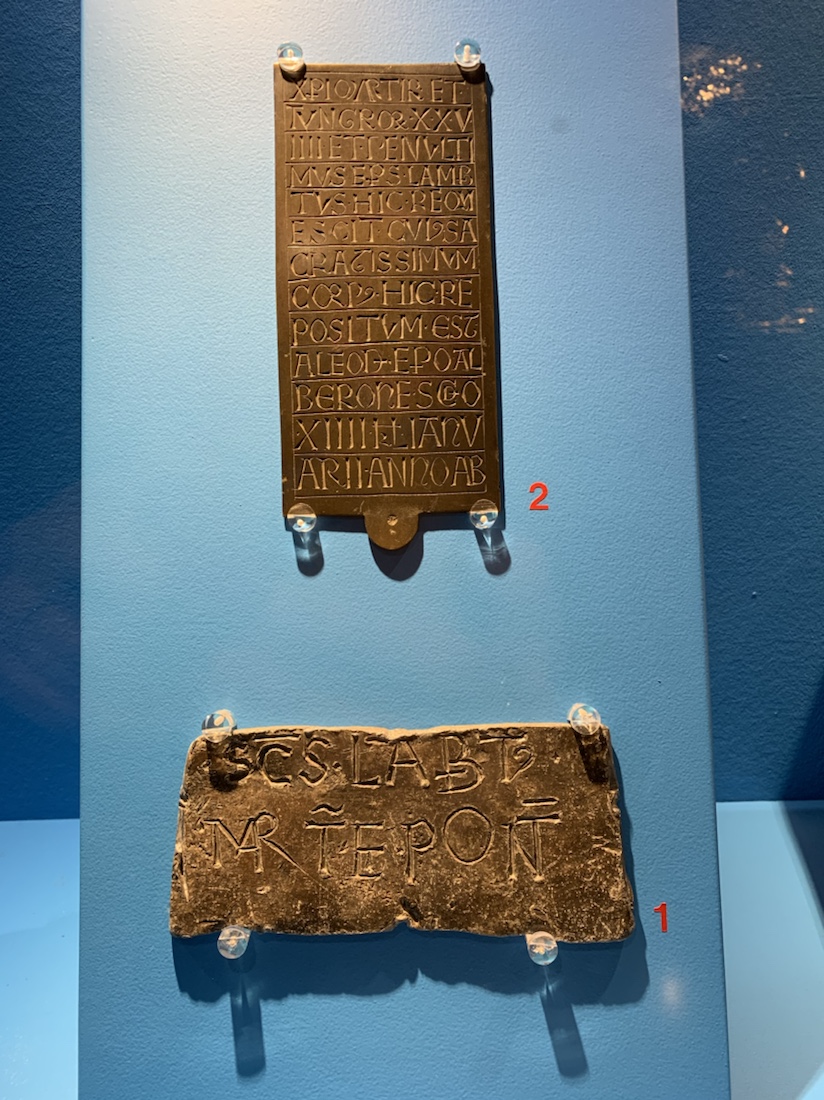 XPI MARTIR ET
TVNGROR · XXV
IIII ET PENVLTI
MVS EPS · LAMB
TVS · HIC · REQVI
ESCIT · CVIꝰ SA
CRATISSIMVM
CORPꝰ · HIC · RE
POSITVM · EST
A LEOD · EPO AL
BERONE · SCDO
XIIII KL IANV
ARII · ANNO AB
2
SC̄S · LĀBT̄ꝰ
MR T̃ E PON̄T̄
1